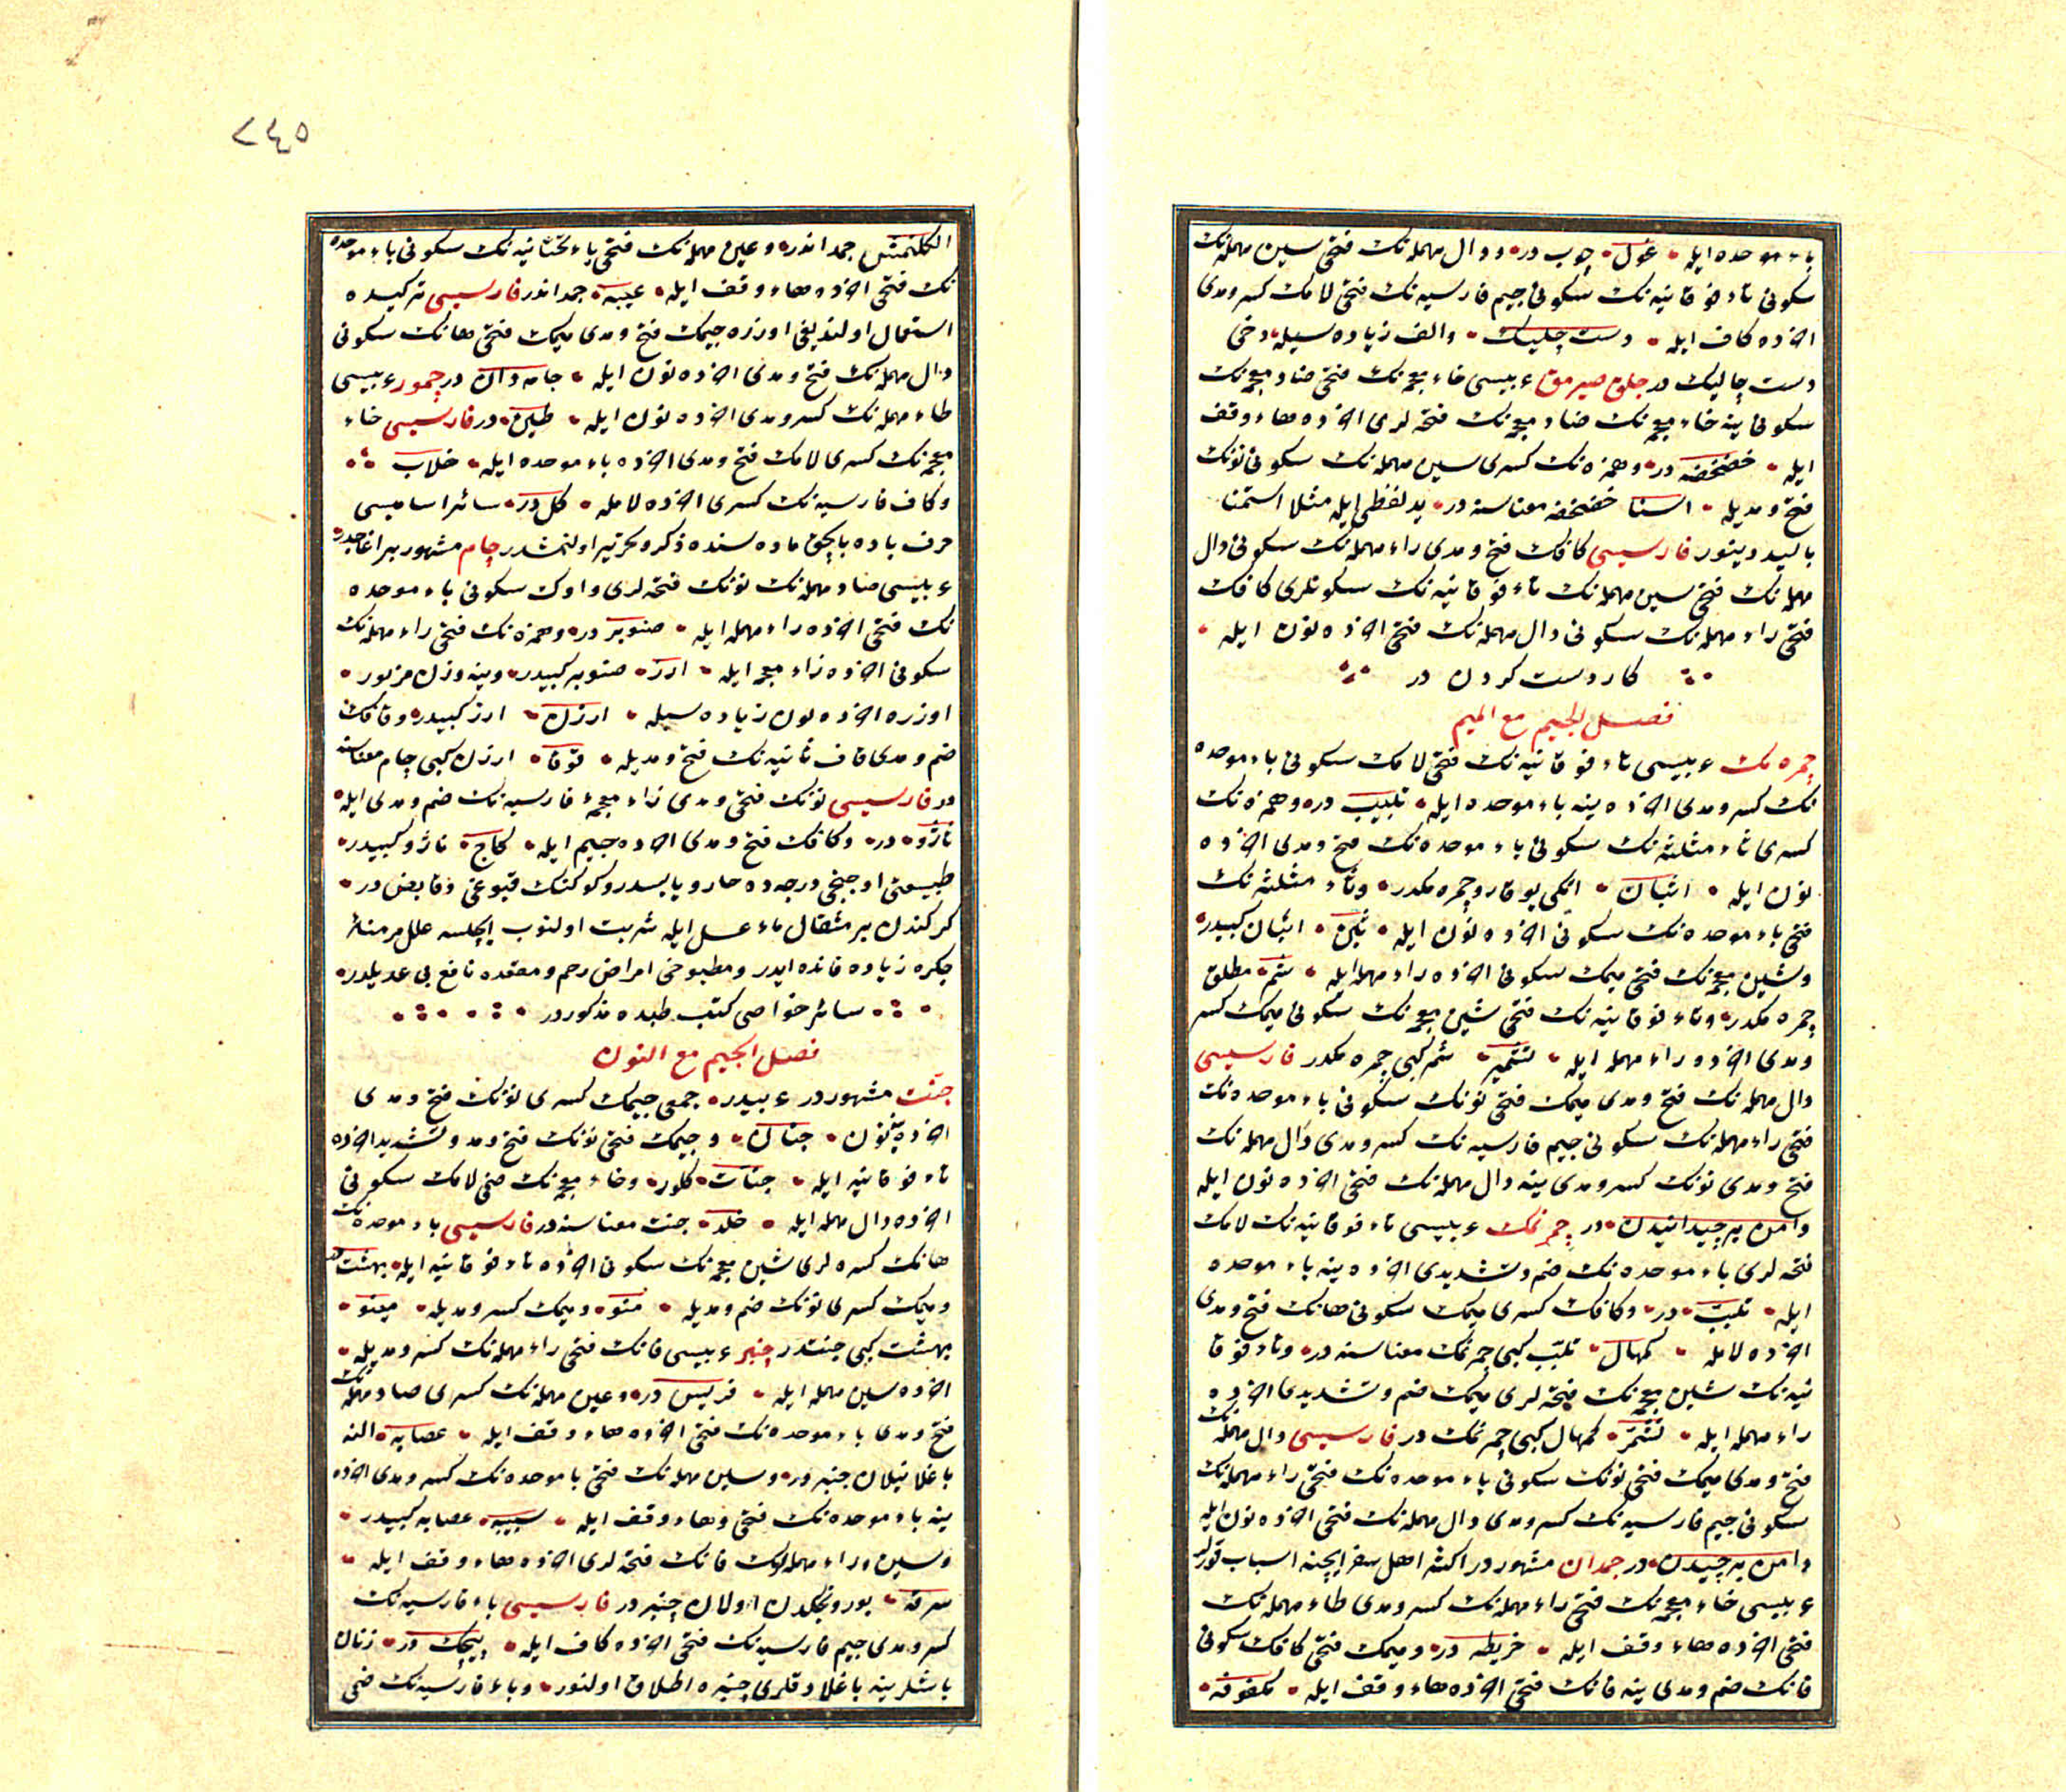 باء موحده ایله غول چوب در ودال مهمله نک فتحی سین مهمله نک
سکونی تاء فوقانیه نک سکونی جیم فارسیه نک فتحی لامک کسر ومدی
آخرده کاف ایله دست چلیک والف زیاده سیله دخی
دست چالیک در جلق صیرمق عربیسی خاء معجمه نک فتحی ضاد معجمه نک
سکونی ینه خاء معجمه نک ضاد معجمه نک فتحه لری آخرده هاء وقف
ایله خضخضه در وهمزه نک کسری سین مهمله نک سکونی نونک
فتح ومدیله استنا خضخضه معناسنه در ید لفظی ایله مثلا استمنا
بالید دینور فارسیسی کافک فتح ومدی راء مهمله نک سکونی دال
مهمله نک فتحی سین مهمله نک تاء فوقانیه نک سکونلری کافک
فتحی راء مهمله نک سکونی دال مهمله نک فتحی آخرده نون ایله
کار دست کردن در
فصل الجیم مع المیم
چمره مک عربیسی تاء فوقانیه نک فتحی لامک سکونی باء موحده
نک کسر ومدی آخرده ینه باء موحده ایله تلبیب در وهمزه نک
کسری ثاء مثلثه نک سکونی باء موحده نک فتح ومدی آخرده
نون ایله اثبان ایکی یوقارو چمره مکدر وثاء مثلثه نک
فتحی باء موحده نک سکونی آخرده نون ایله ثبن اثبان کبیدر
وشین معجمه نک فتحی میمک سکونی آخرده راء مهمله ایله شمر مطلق
چمره مکدر وتاء فوقانیه نک فتحی شین معجمه نک سکونی میمک کسر
ومدی آخرده راء مهمله ایله تشمیر شمر کبی چمره مکدر فارسیسی
دال مهمله نک فتح ومدی میمک فتحی نونک سکونی باء موحده نک
فتحی راء مهمله نک سکونی جیم فارسیه نک کسر ومدی دال مهمله نک
فتح ومدی نونک کسر ومدی ینه دال مهمله نک فتحی آخرده نون ایله
دامن برچیدانیدن در چمرنمک عربیسی تاء فوقانیه نک لامک
فتحه لری باء موحده نک ضم وتشدیدی آخرده ینه باء موحده
ایله تلبب در وکافک کسری میمک سکونی هانک فتح ومدی
آخرده لامله کمهال تلبب کبی چمرنمک معناسنه در وتاء فوقا
نیه نک شین معجمه نک فتحه لری میمک ضم وتشدیدی آخرده
راء مهمله ایله تشمر کمهال کبی چمرنمک در فارسیسی دال مهمله نک
فتح ومدی میمک فتحی نونک سکونی باء موحده نک فتحی راء مهمله نک
سکونی جیم فارسیه نک کسر ومدی دال مهمله نک فتحی آخرده نون ایله
دامن برچیدن در جمدان مشهور در اکثر اهل سفر ایچنه اسباب قورلر
عربیسی خاء معجمه نک فتحی راء مهمله نک کسر ومدی طاء مهمله نک
فتحی آخرده هاء وقف ایله خریطه در ومیمک فتحی کافک سکونی
فانک ضم ومدی ینه فانک فتحی آخرده هاء وقف ایله مکفوفه
٢٤٥
جمداندر وعین مهمله نک فتحی یاء تحتانیه نک سکونی باء موحده
نک فتحی آخرده هاء وقف ایله عیبه جمداندر فارسیسی ترکیده
استعمال اولندیغی اوزره جیمک فتح ومدی میمک فتحی هانک سکونی
دال مهمله نک فتح ومدی آخرده نون ایله جامه دان در چمور عربیسی
طاء مهمله نک کسر ومدی آخرده نون ایله طین در فارسیسی خاء
معجمه نک کسری لامک فتح ومدی آخرده باء موحده ایله خلاب
وکاف فارسیه نک کسری آخرده لامله کل در سائر اسامیسی
حرف باده بالچق ماده سنده ذکر وتحریر اولنمشدر چام مشهور بر اغاجدر
عربیسی صاد مهمله نک نونک فتحه لری واوک سکونی باء موحده
نک فتحی آخرده راء مهمله ایله صنوبر در وهمزه نک فتحی راء مهمله نک
سکونی آخرده زاء معجمه ایله ارز صنوبر کبیدر وینه وزن مزبور
اوزره آخرده نون زیاده سیله ارزن ارز کبیدر وقافک
ضم ومدی قاف ثانیه نک فتح ومدیله قوقا ارزن کبی چام معناسنه
در فارسیسی نونک فتحی ومدی زاء معجمه فارسیه نک ضم ومدی ایله
ناژو در وکافک فتح ومدی آخرده جیم ایله کاج ناژو کبیدر
طبیعتی اوچنجی درجه ده حار ویابسدر وکوکنک قبوغی دقابض در
کرکندن بر مثقال ماء عسل ایله شربت اولنوب ایچلسه علل مزمنه
جکره زیاده فائده ایدر ومطبوخی امراض رحم ومقعده نافع بی عدیلدر
سائر خواصی کتب طبده مذکور در
فصل الجیم مع النون
جنت مشهور در عربیدر جمعی جیمک کسری نونک فتح ومدی
آخرده ینه نون جنان وجیمک فتحی نونک فتح ومد وتشدید آخرده
تاء فوقانیه ایله جنات کلور وخاء معجمه نک ضمی لامک سکونی
آخرده دال مهمله ایله خلد جنت معناسنه در فارسیسی باء موحده نک
هانک کسره لری شین معجمه نک سکونی آخرده تاء فوقانیه ایله بهشت در
ومیمک کسری نونک ضم ومدیله منو ومیمک کسر ومدیله مینو
بهشت کبی جنتدر چنبر عربیسی فانک فتحی راء مهمله نک کسر ومدیله
آخرده سین مهمله ایله فریس در وعین مهمله نک کسری صاد مهمله نک
فتح ومدی باء موحده نک فتحی آخرده هاء وقف ایله عصابه النه
باغلانیلان چنبر در وسین مهمله نک فتحی با موحده نک کسر ومدی آخرده
ینه باء موحده نک فتحی وهاء وقف ایله سبیبه عصابه کبیدر
وسین وراء مهمله لرک فانک فتحه لری آخرده هاء وقف ایله
سرفه بورونجکدن اولان چنبر در فارسیسی باء فارسیه نک
کسر ومدی جیم فارسیه نک فتحی آخرده کاف ایله پیچک در زنان
باشلرینه باغلادقلری چنبره اطلاق اولنور وباء فارسیه نک ضمی